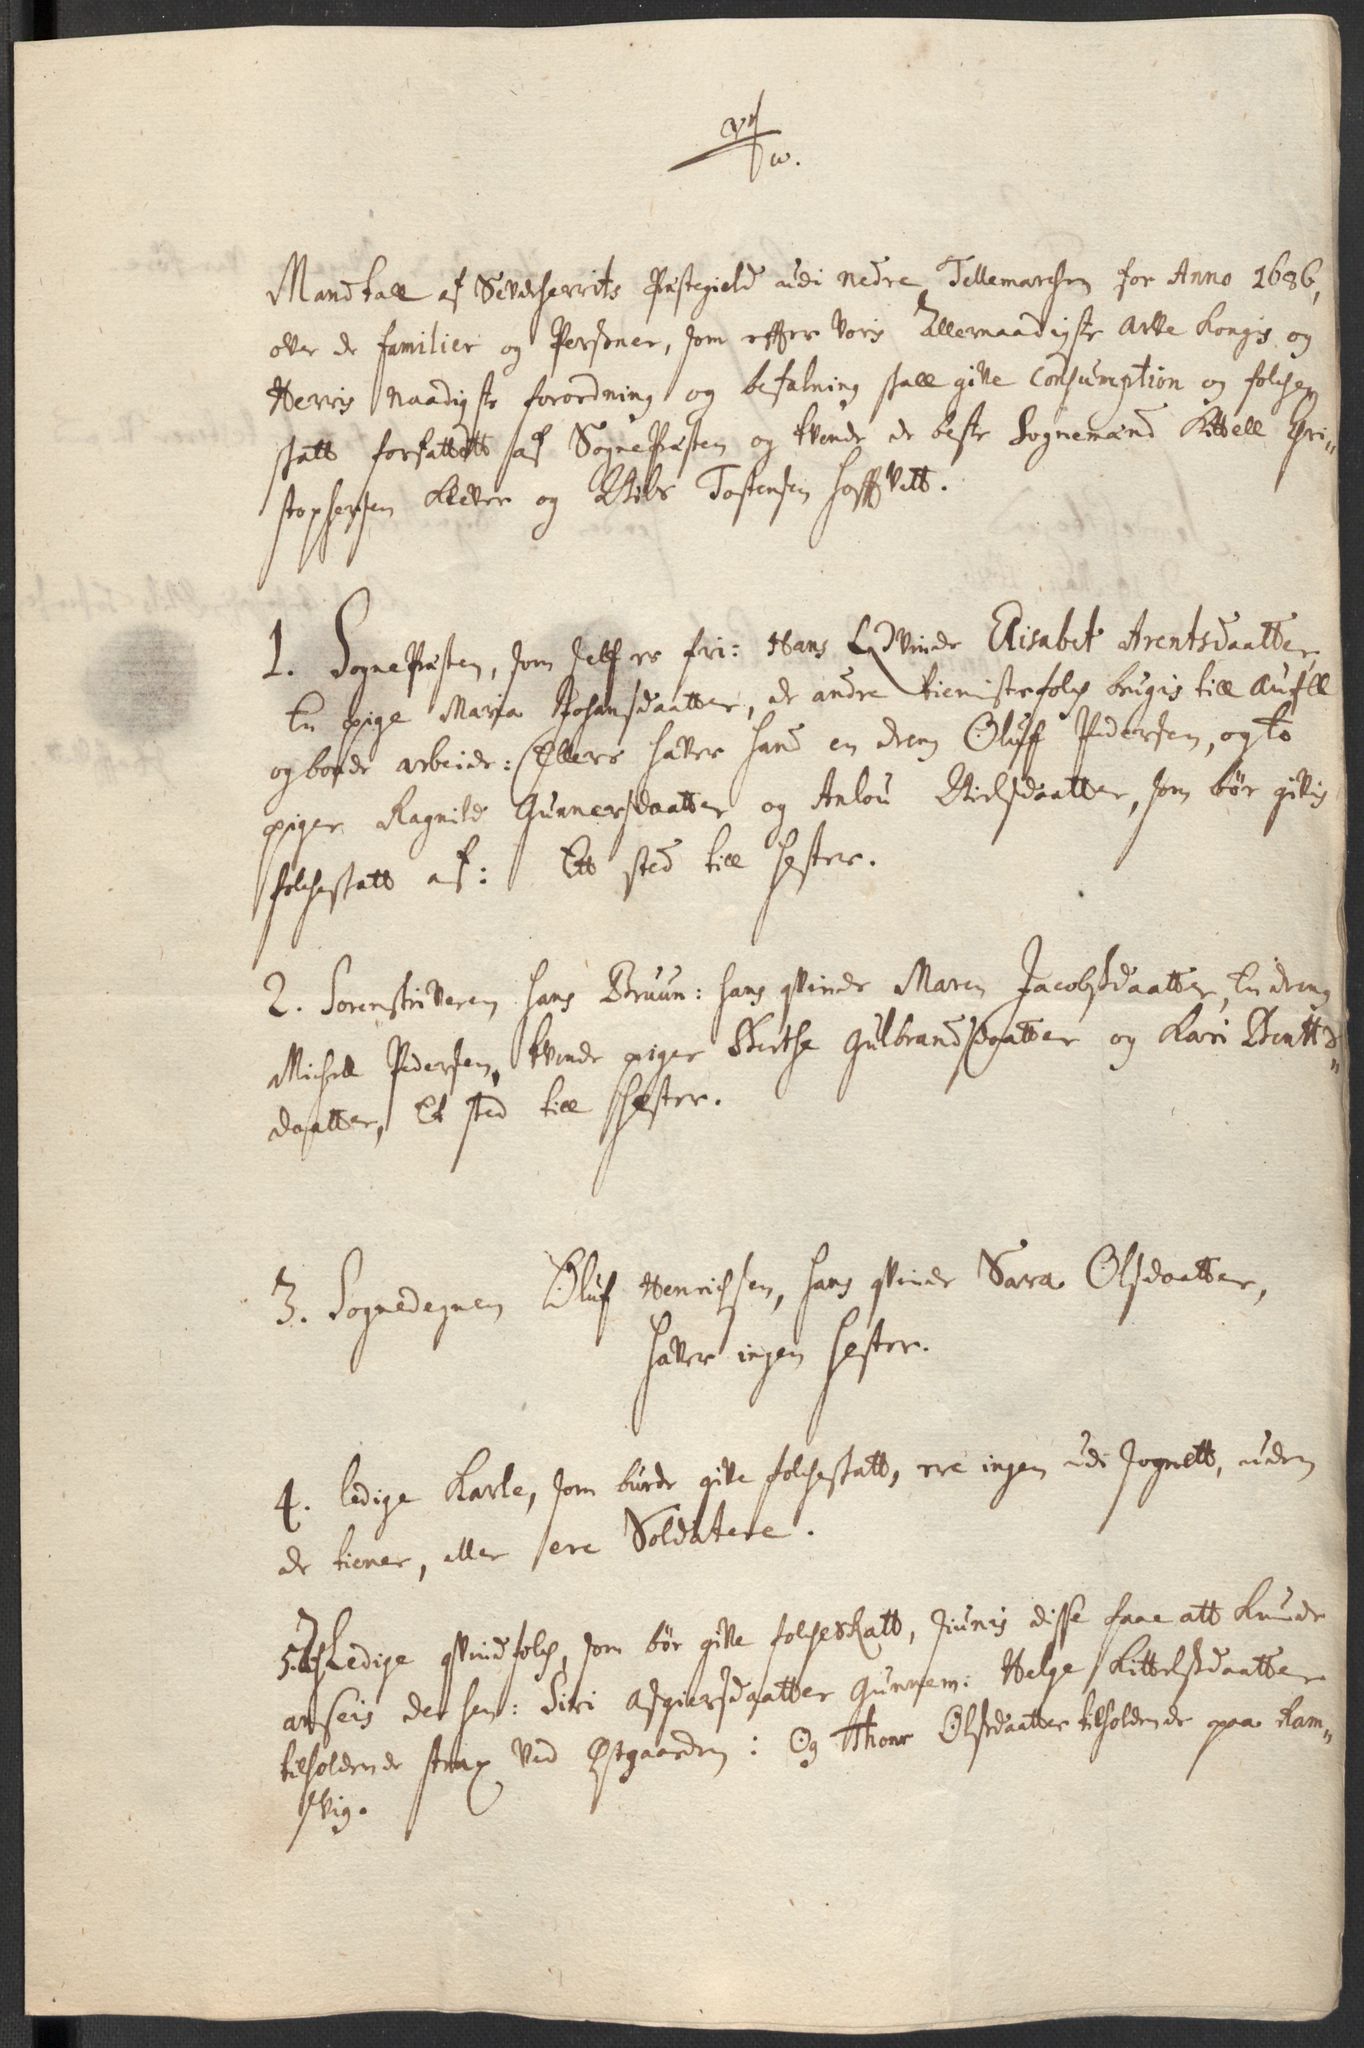 Mandtall af Sevdeherrits Præstegield udi nedre Tellemarchen for Anno 1686,
over de familier og Personer, som effter voris allernaadigste arve Kongis og
Herris naadigste forordning og befalning skall give Consumption og folche
skatt forfattett af SognePræsten og tvende de beste Sognemænd Kittell Chri„
stophersen Klever og Niels Tostensen Hoffvett.
1. SognePræsten, som self er fri: Hans Qvinde Elisabet Arentsdaatter,
En pige Maria Johansdaatter, de andre tienistefolch brugis till aufll
og bonde arbeide: Ellers haver hand en dreng Oluff Pedersen, og to
piger Ragnild Gunnersdaatter og Anlou Nielsdaatter, som bør givis
folcheskatt af: Ett sted till hester.
2. Sorenskriveren Hans Bruun: hans qvinde Maren Jacobsdaatter, En dreng
Michell Pedersen, tvende piger Berthe Gulbrandsdaatter og Kari Bentt
daatter, Et sted till hester.
3. Sognedegnen Oluf Henrichsen, hans qvinde Sara Olsdaatter,
haver ingen hester.
4. ledige Karle, som burde give folcheskatt, ere ingen udi sognett, uden
de tiener, eller ere Soldatere.
5. Ledige qvindfolch, som bør give folcheskatt, siunis disse faae att kunde
anseis der hen: Siri Asgiersdaatter Gunnem: Helge Kittelsdaatter
tilholdende strax ved Østgaarden: Og Thone Olsdaatter tilholdende paa Ram„
svig.